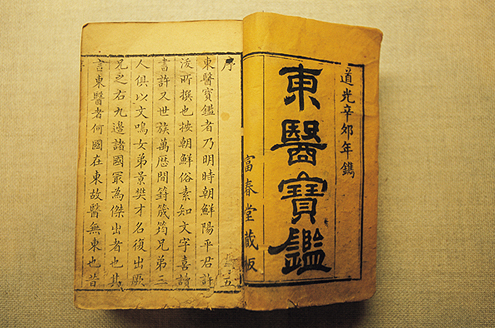 道光辛卯年鐫
東醫寶鑑
富春堂藏版
序
東醫寶鑑者乃明時朝鮮陽平君許
浚所撰也按朝鮮俗素知文字喜讀
書許又世族萬歷間篈筬筠兄弟三
人俱以文鳴女弟景樊才名復出厥
兄之右九邊諸國冣為傑出者也其
言東醫者何國在東故醫無東也昔